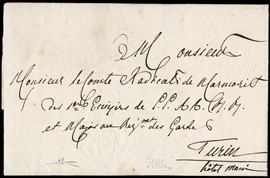 A Monsieur
Monsieur le Comte Radicati de Marmorit
des 1ers Ecuyers de S.S. A.A. R.R.
et Major au Regt des Gardes
Turin